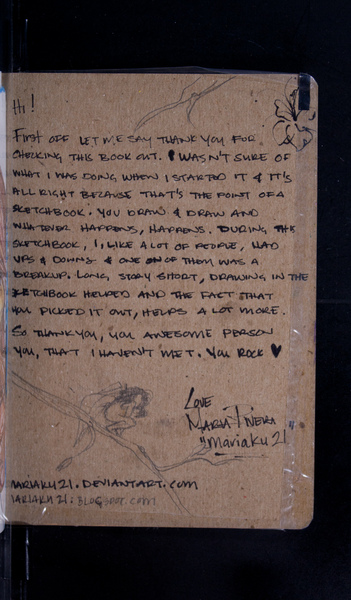 Hi!
First off let me say thank you for
checking this book out. I wasn't sure of
what I was doing when I started it & it's
all right because that's the point of a
sketchbook. You draw & draw and
whatever happens, happens. During this
sketchbook, I, like a lot of people, had
ups & downs & one on of them was a
breakup. Long story short, drawing in the
sketchbook helped and the fact that
you picked it out, helps a lot more.
So thank you, you awesome person
you, that I haven't met. You rock ♥
Love
Maria
"mariaku21
mariaku21.deviantart.com
mariaku21.blogspot.com